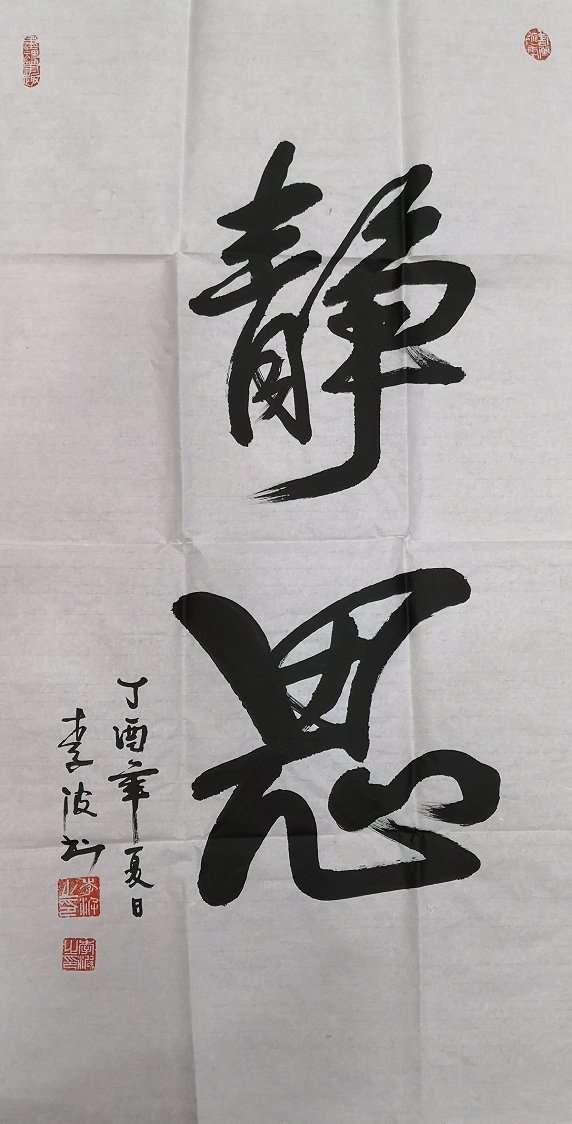 静思
丁酉年夏日
李波书